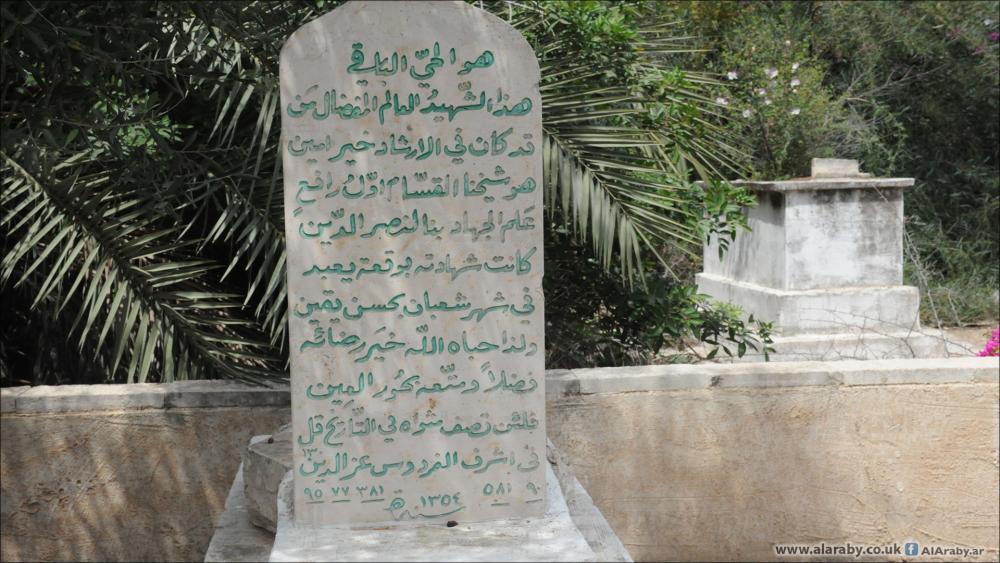 هو الحيّ الباقي
هذا الشّهيدُ العالم المفضال مَن
قد كان في الارشاد خير امين
هو شيخنا القسّام اوّل رافعٍ
عَلم الجهاد بنا لنصر الدّين
كانت شهادته بوقعة يعبد
في شهر شعبان بحسن يقين
ولذا حباه اللّه خيَر رضائه
فضلاً ومتّعه بحُور العِين
فلئن تصف مثواه في التّاريخ قل
في اشرف الفردوس عز الدين
٩٠ ٥٨١ ١٣٠ ٣٨١ ٧٧ ٩٥
سنة ١٣٥٤ ه
www.alaraby.co.uk AlAraby.ar